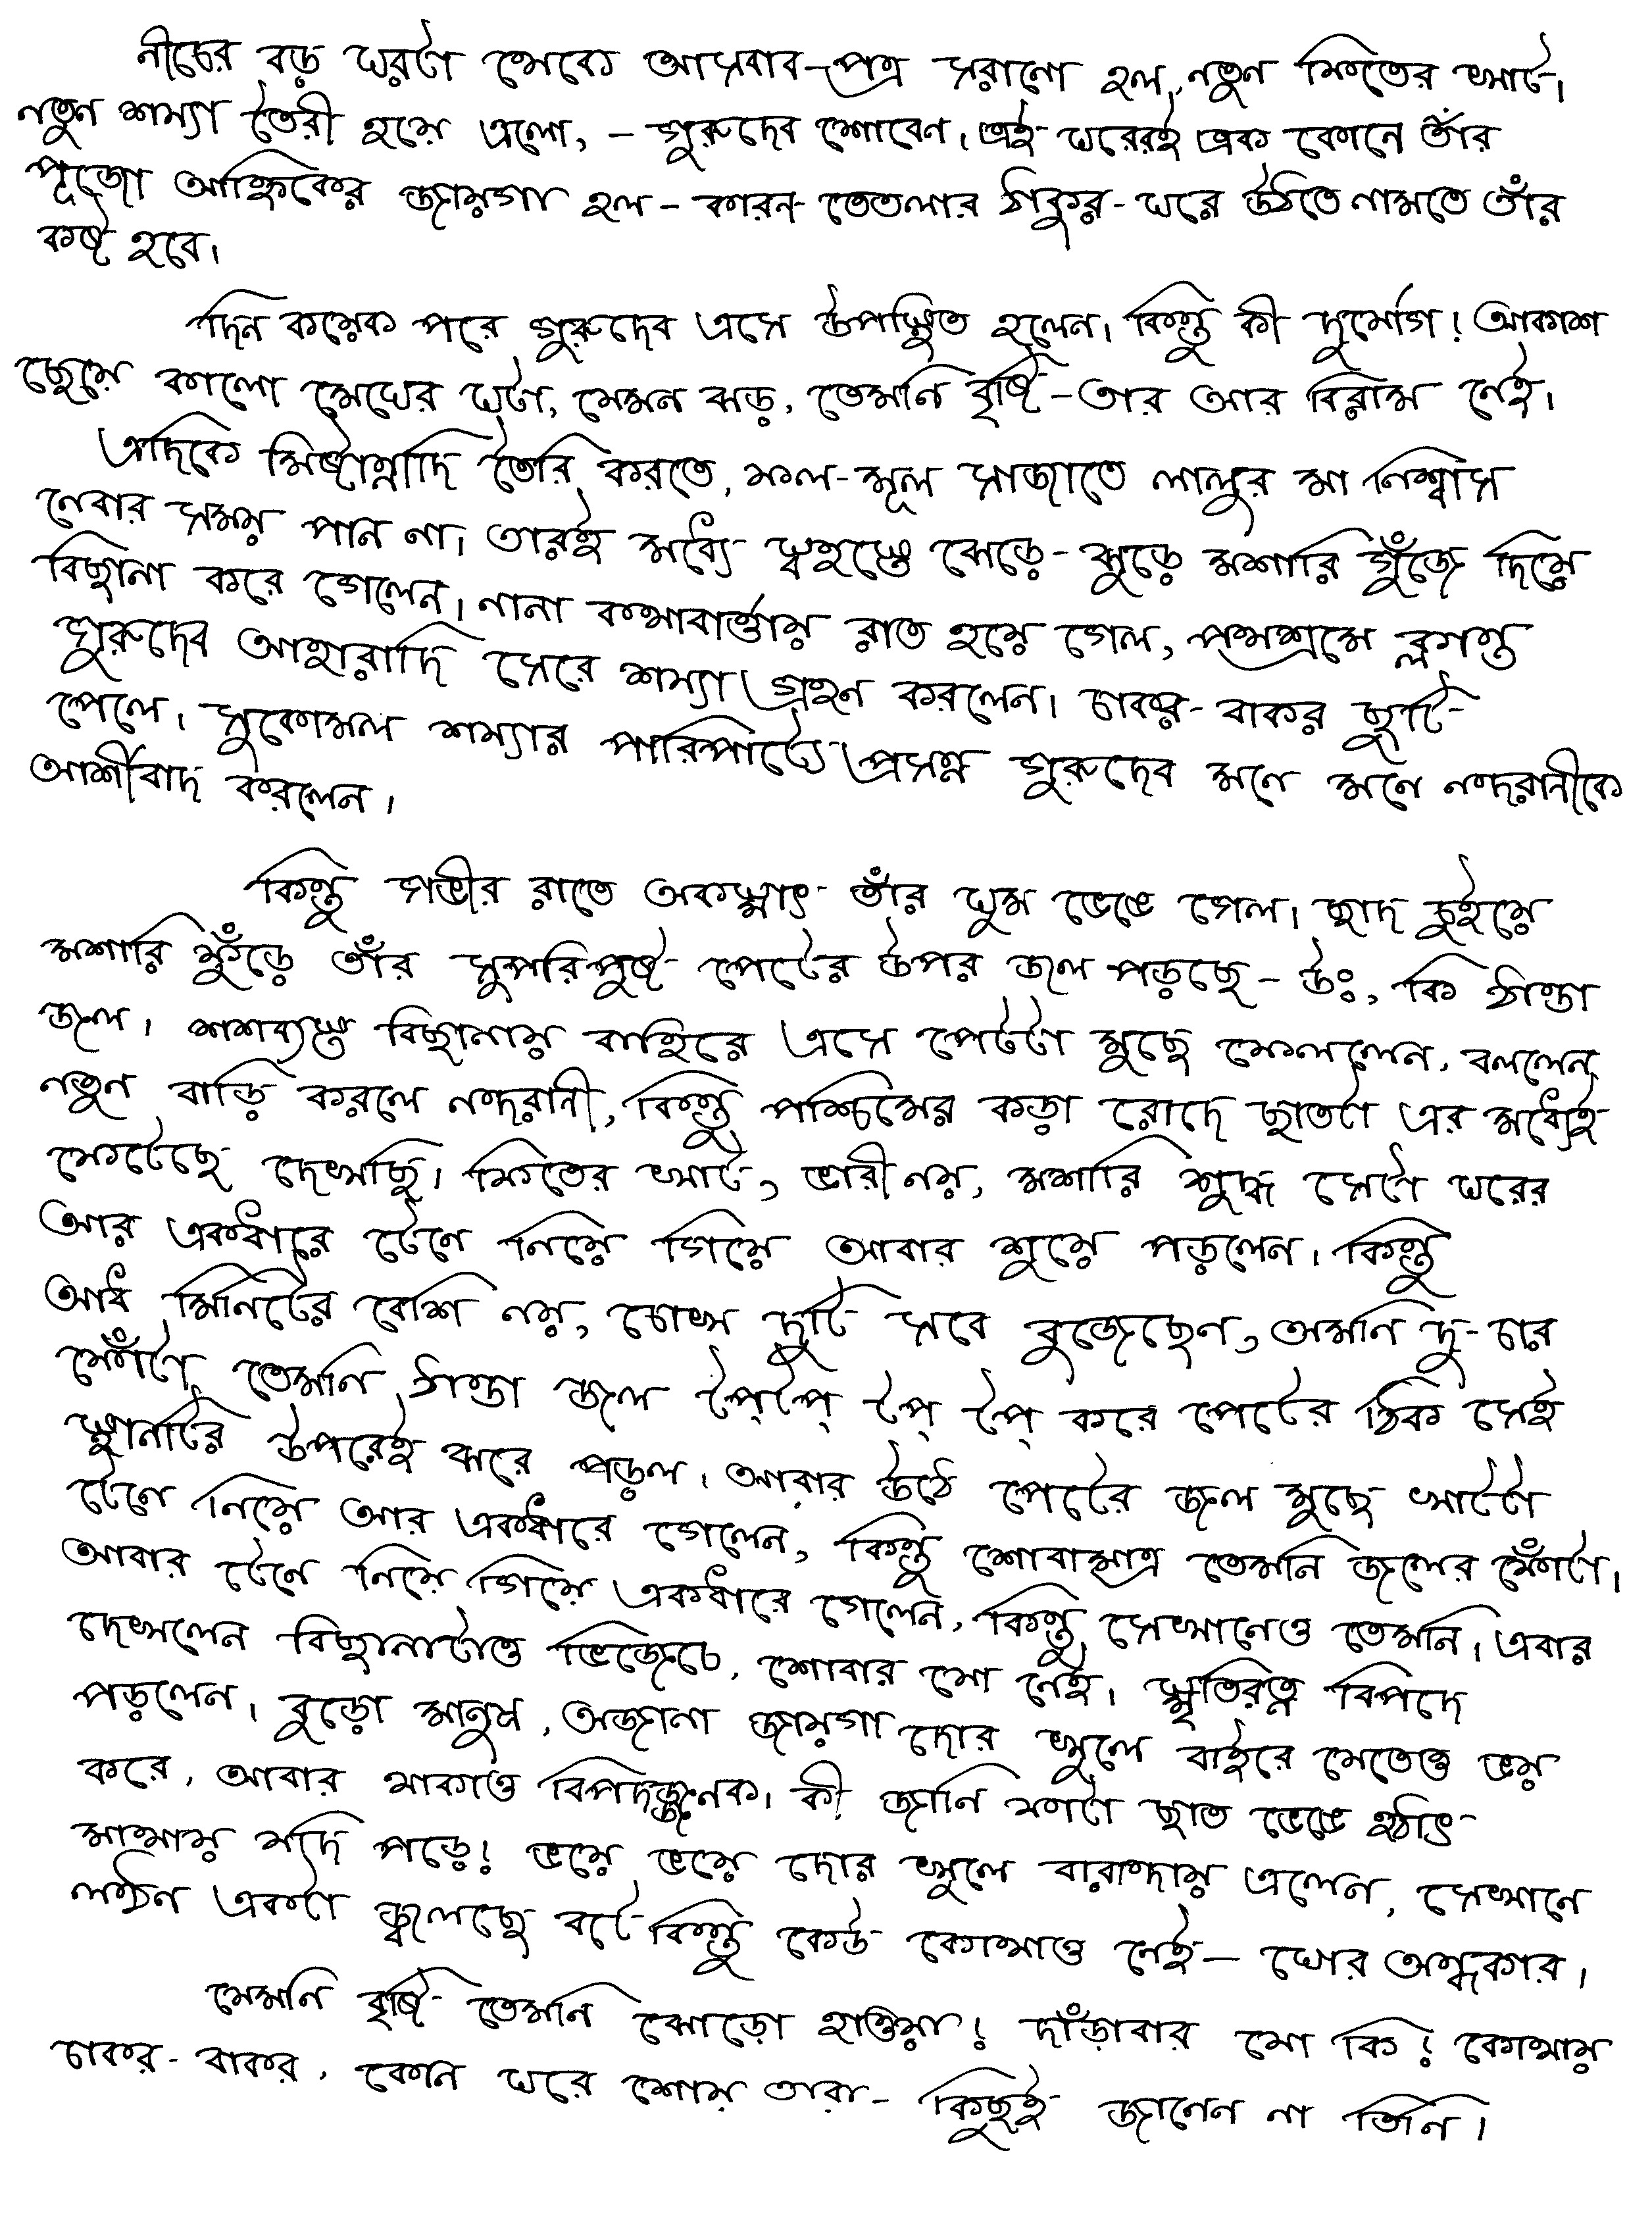 নীচের বড় ঘরটা থেকে আসবাব-পত্র সরানো হল, নতুন ফিতের খাট,
নতুন শয্যা তৈরী হয়ে এলো, - গুরুদেব শোবেন। এই ঘরেরই এক কোনে তাঁর
পূজো আহ্নিকের জায়গা হল - কারন তেতলার ঠাকুর-ঘরে উঠতে নামতে তাঁর
কষ্ট হবে।
দিন কয়েক পরে গুরুদেব এসে উপস্থিত হলেন। কিন্তু কী দুর্যোগ! আকাশ
ছেয়ে কালো মেঘের ঘটা, যেমন ঝড়, তেমনি বৃষ্টি - তার আর বিরাম নেই।
এদিকে মিষ্টান্নাদি তৈরি করতে, ফল-মূল সাজাতে লালুর মা নিশ্বাস
নেবার সময় পান না। তারই মধ্যে স্বহস্তে ঝেড়ে-ঝুড়ে মশারি গুঁজে দিয়ে
বিছানা করে গেলেন। নানা কথাবার্ত্তায় রাত হয়ে গেল, পথশ্রমে ক্লান্ত
গুরুদেব আহারাদি সেরে শয্যা গ্রহণ করলেন। চাকর-বাকর ছুটি
পেলে। সুকোমল শয্যার পারিপাট্যে প্রসন্ন গুরুদেব মনে মনে নন্দরানীকে
আর্শীবাদ করলেন।
কিন্তু গভীর রাতে অকস্মাৎ তাঁর ঘুম ভেঙে গেল। ছাদ চুইয়ে
মশারি ফুঁড়ে তাঁর সুপরিপুষ্ট পেটের উপর জল পড়ছে - উঃ, কি ঠান্ডা
জল। শশব্যস্তে বিছানায় বাহিরে এসে পেটটা মুছে ফেললেন, বললেন,
নতুন বাড়ি করলে নন্দরানী, কিন্তু পশ্চিমের কড়া রোদে ছাতটা এর মধ্যেই
ফেটেছে দেখছি। ফিতের খাট, ভারী নয়, মশারি শুদ্ধ সেটা ঘরের
আর একধারে টেনে নিয়ে গিয়ে আবার শুয়ে পড়লেন। কিন্তু
আধ মিনিটের বেশি নয়, চোখ দুটি সবে বুজেছেন, অমনি দু-চার
ফোঁটা তেমনি ঠান্ডা জল টপ্‌টপ্‌ টপ্‌ টপ্‌ করে পেটের ঠিক সেই
স্থানটির উপরেই ঝরে পড়ল। আবার উঠে পেটের জল মুছে খাটটা
টেনে নিয়ে আর একধারে গেলেন, কিন্তু শোবামাত্র তেমনি জলের ফোঁটা।
আবার টেনে নিয়ে গিয়ে একধারে গেলেন, কিন্তু সেখানেও তেমনি। এবার
দেখলেন বিছানাটাও ভিজেচে, শোবার যো নেই। স্মৃতিরত্ন বিপদে
পড়লেন। বুড়ো মানুষ, অজানা জায়গা দোর খুলে বাইরে যেতেও ভয়
করে, আবার থাকাও বিপদজ্জনক। কী জানি ফাটা ছাত ভেঙে হঠাৎ
মাথায় যদি পড়ে! ভয়ে ভয়ে দোর খুলে বারান্দায় এলেন, সেখানে
লন্ঠন একটা জ্বলছে বটে কিন্তু কেউ কোথাও নেই - ঘোর অন্ধকার।
যেমনি বৃষ্টি তেমনি ঝোড়ো হাওয়া! দাঁড়াবার যো কি! কোথায়
চাকর-বাকর, কোন ঘরে শোয় তারা - কিছুই জানেন না তিনি।